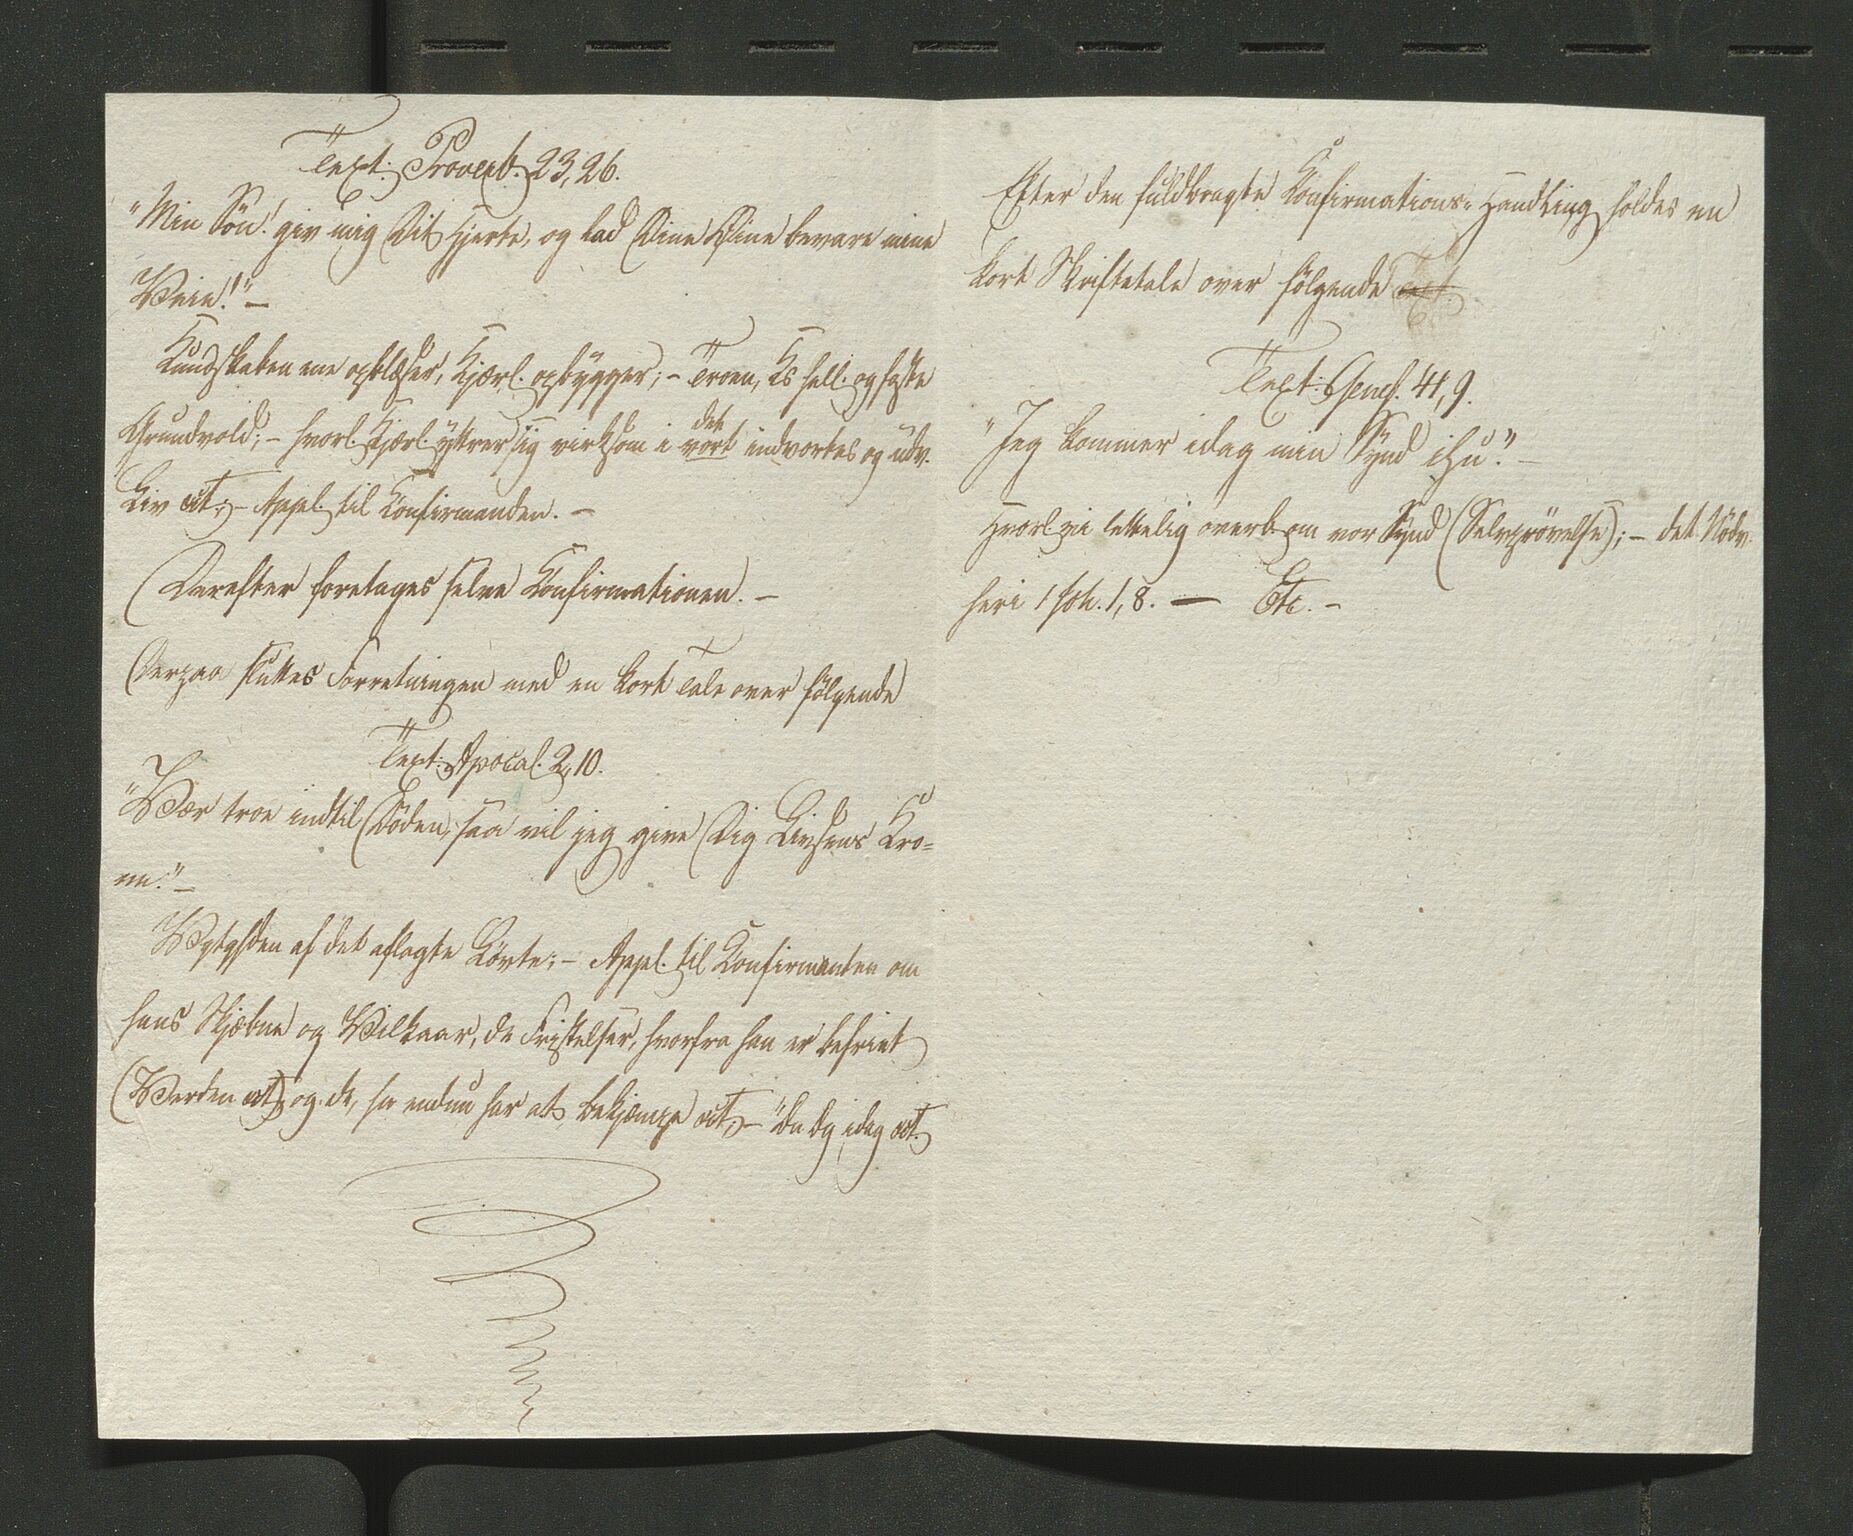 Text: Proverb. 23, 26.
"Min Søn! giv mig Dit Hjerte, og lad Dine Øine bevare mine
Veie!" –
Kundskaben ene opblæser, Kjærl. opbygger; – Troen, Ks hell. og faste
Grundvold; – hvorl. Kjærl. yttrer sig virksom i vort det indvortes og udv.
Liv &ct; – Appl. til Confirmanden. –
(Derefter foretages selve Confirmationen. –
Derpaa sluttes Forretningen med en kort Tale over følgende
Text: Apocal. 2, 10.
"Vær troe indtil Døden, saa vil jeg give Dig Livsens Kro-
ne." –
Vigtigheden af det aflagte Løvte; – Appl. til Confirmanten om
hans Skjæbne og Vilkaar, de Fristelser, hvorfra han er befriet
(Verden &ct) og de, han endnu har at bekjæmpe &ct; – "Da Dg idag &ct.
Efter den fuldbragte Confirmations-Handling holdes en
kort Skriftetale over følgende Text.
Text: Genes. 41, 9.
"Jeg kommer idag min Synd ihu." –
Hvorl. vi lettelig overb. om vor Synd (Selvprøvelse); – det Nødv.
heri 1 Joh. 1, 8. — Etc. –